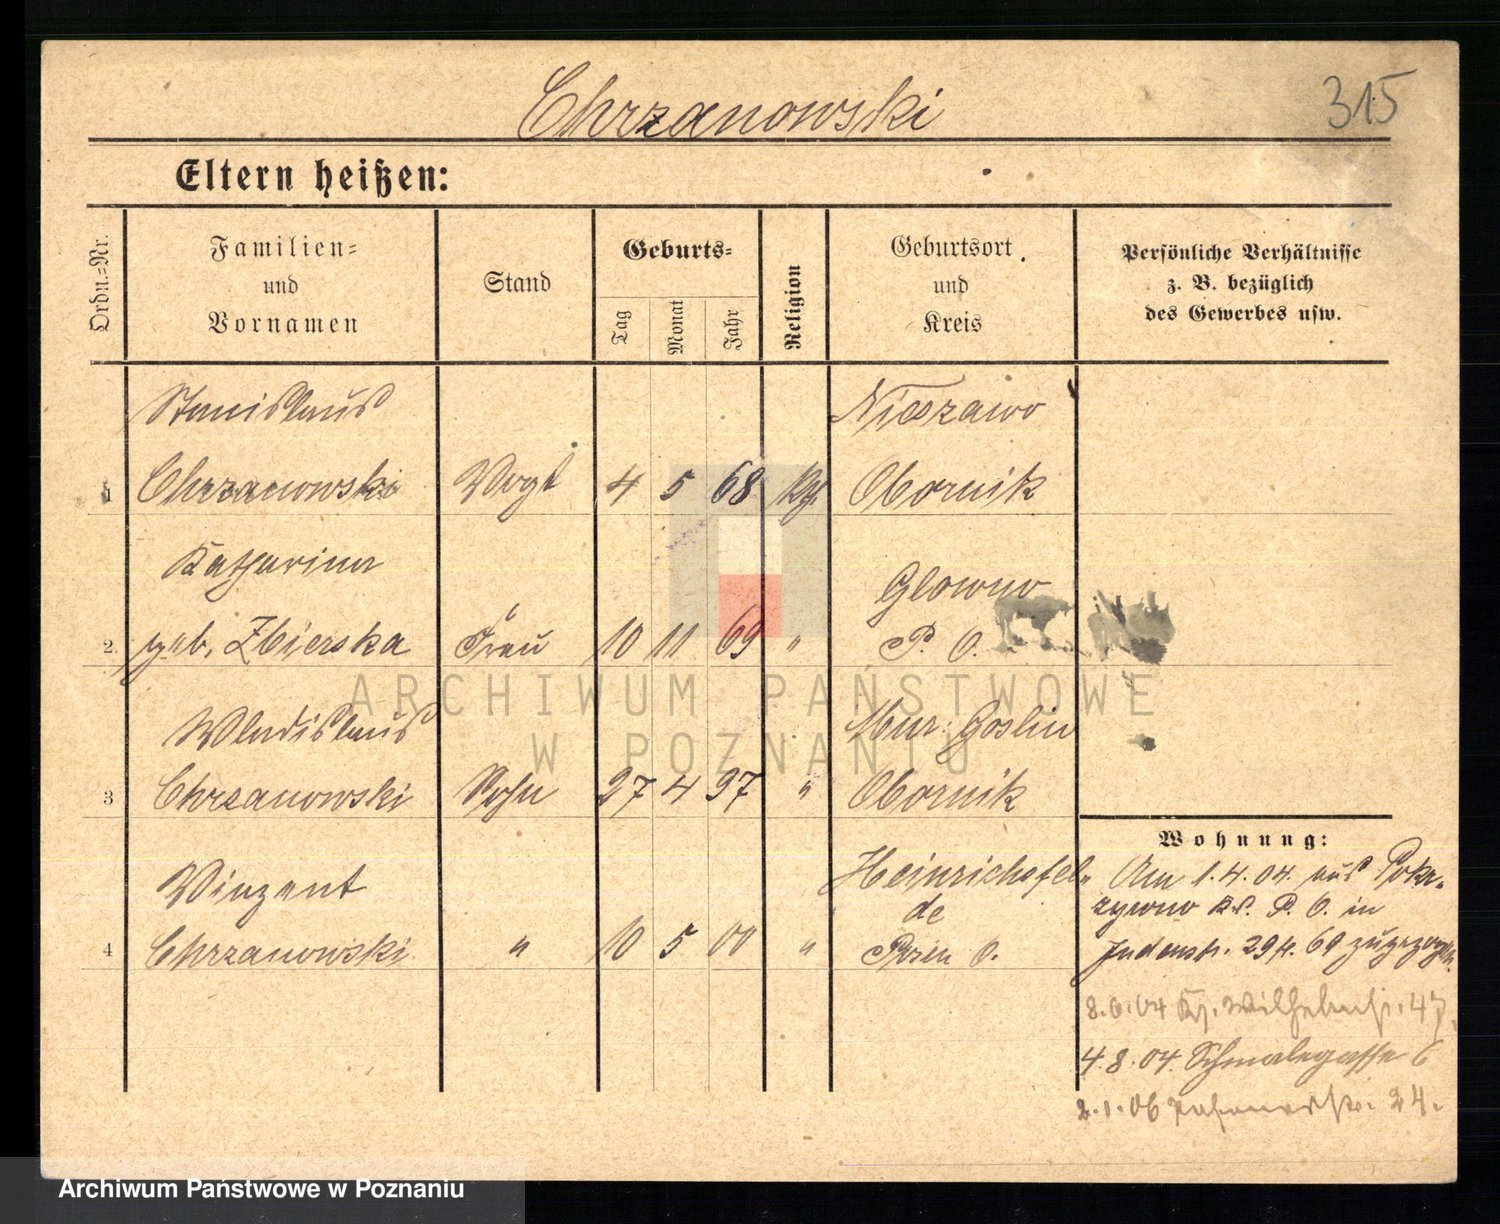 Chrzanowski
315
Eltern heißen:
Ordn.=Nr.
Familien=
und
Vornamen
Stand
Geburts=
Tag
Monat
Jahr
Religion
Geburtsort
und
Kreis
Persönliche Verhältnisse
z. B. bezüglich
des Gewerbes usw.
Stanislaus
Nieszawo
1 Chrzanowski Vogt 4 5 68 Obornik
Katharina
Glowno
2. geb. Zbierska Frau 10 11 69 " P. O.
Wladislaus
Mur: Goslin
3 Chrzanowski Sohn 27 4 97 " Obornik
Wohnung:
Vinzent
Heinrichsfel-
de
4 Chrzanowski " 10 5 00 " Posen O.
Am 1.4.04. aus Pokr-
zywno Kr. P. O. in
Judenstr. 29 69 zugezogen.
8.6.04 Wilhelmstr. 47
4.8.04. Schmalegasse 6
2.1.06 24.
ARCHIWUM PAŃSTWOWE
W POZNANIU
Archiwum Państwowe w Poznaniu